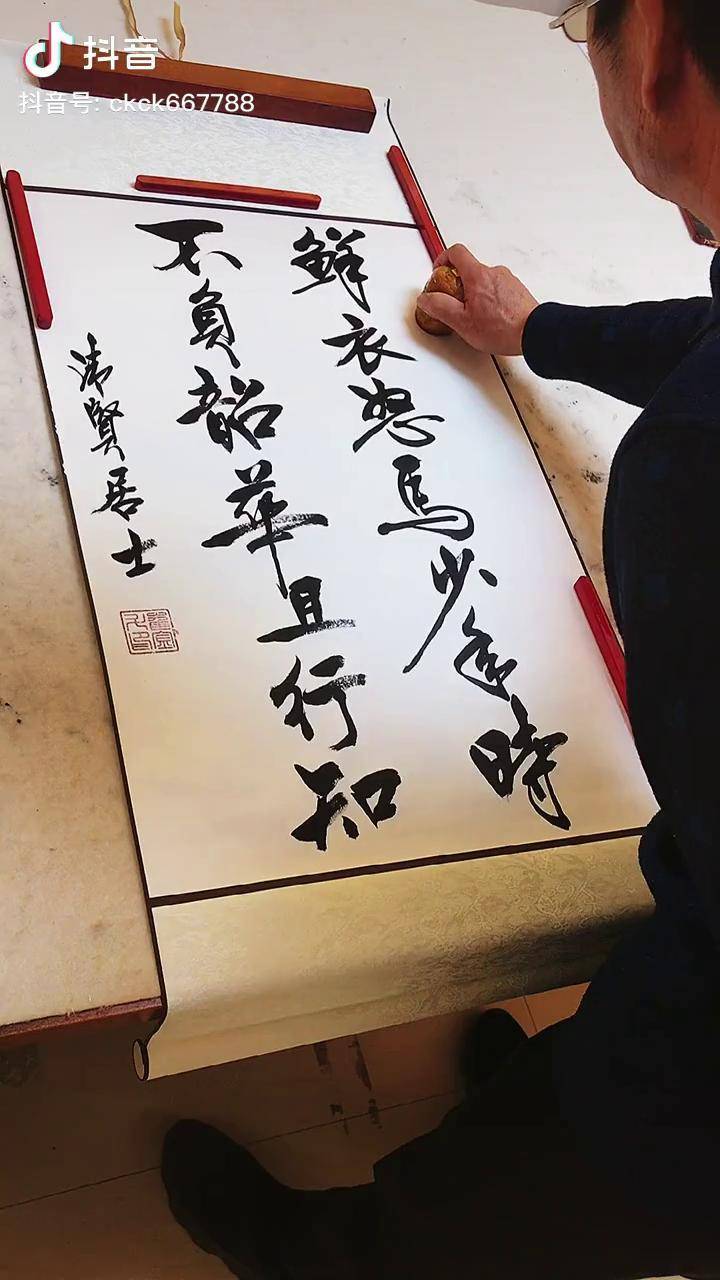 抖音
抖音号: ckck667788
鲜衣怒馬少年時
不負韶華且行知
清賢居士